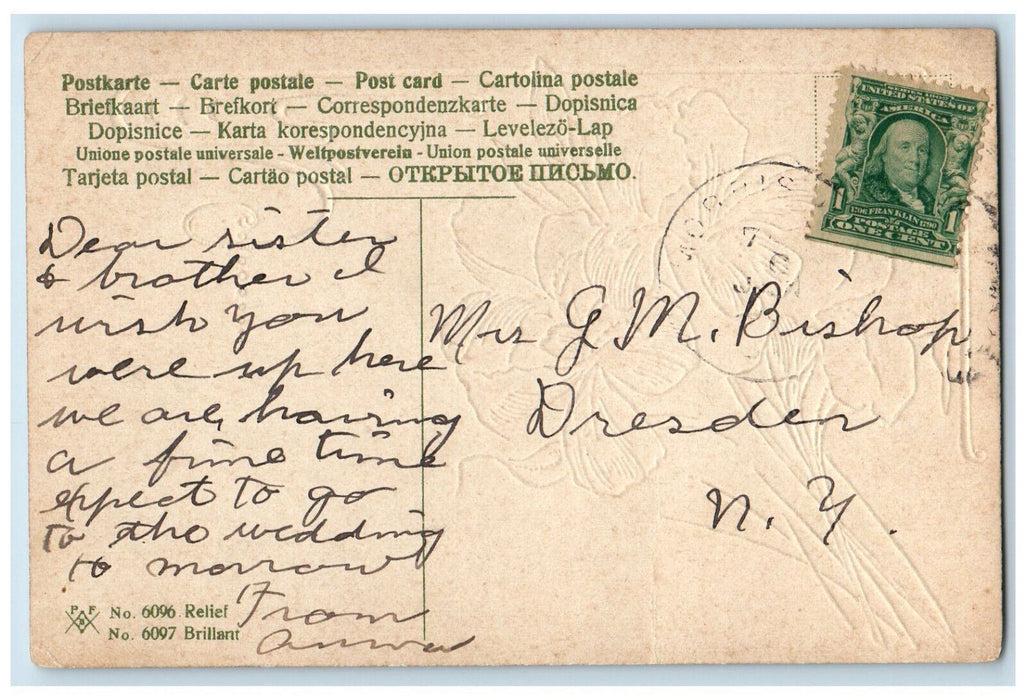 Postkarte — Carte postale — Post card — Cartolina postale
Briefkaart — Brefkort — Correspondenzkarte — Dopisnica
Dopisnice — Karta korespondencyjna — Levelező-Lap
Unione postale universale - Weltpostverein - Union postale universelle
Tarjeta postal — Cartão postal — ОТКРЫТОЕ ПИСЬМО.
UNITED STATES OF
AMERICA
1 1
1706 FRANKLIN 1790
POSTAGE
ONE CENT
Dear sister
& brother I
wish you
were up here
we are having
a fine time
expect to go
to the wedding
to morrow
From
Anna
Mrs G. M. Bishop
Dresden
N. Y.
P F
B
No. 6096 Relief
No. 6097 Brillant